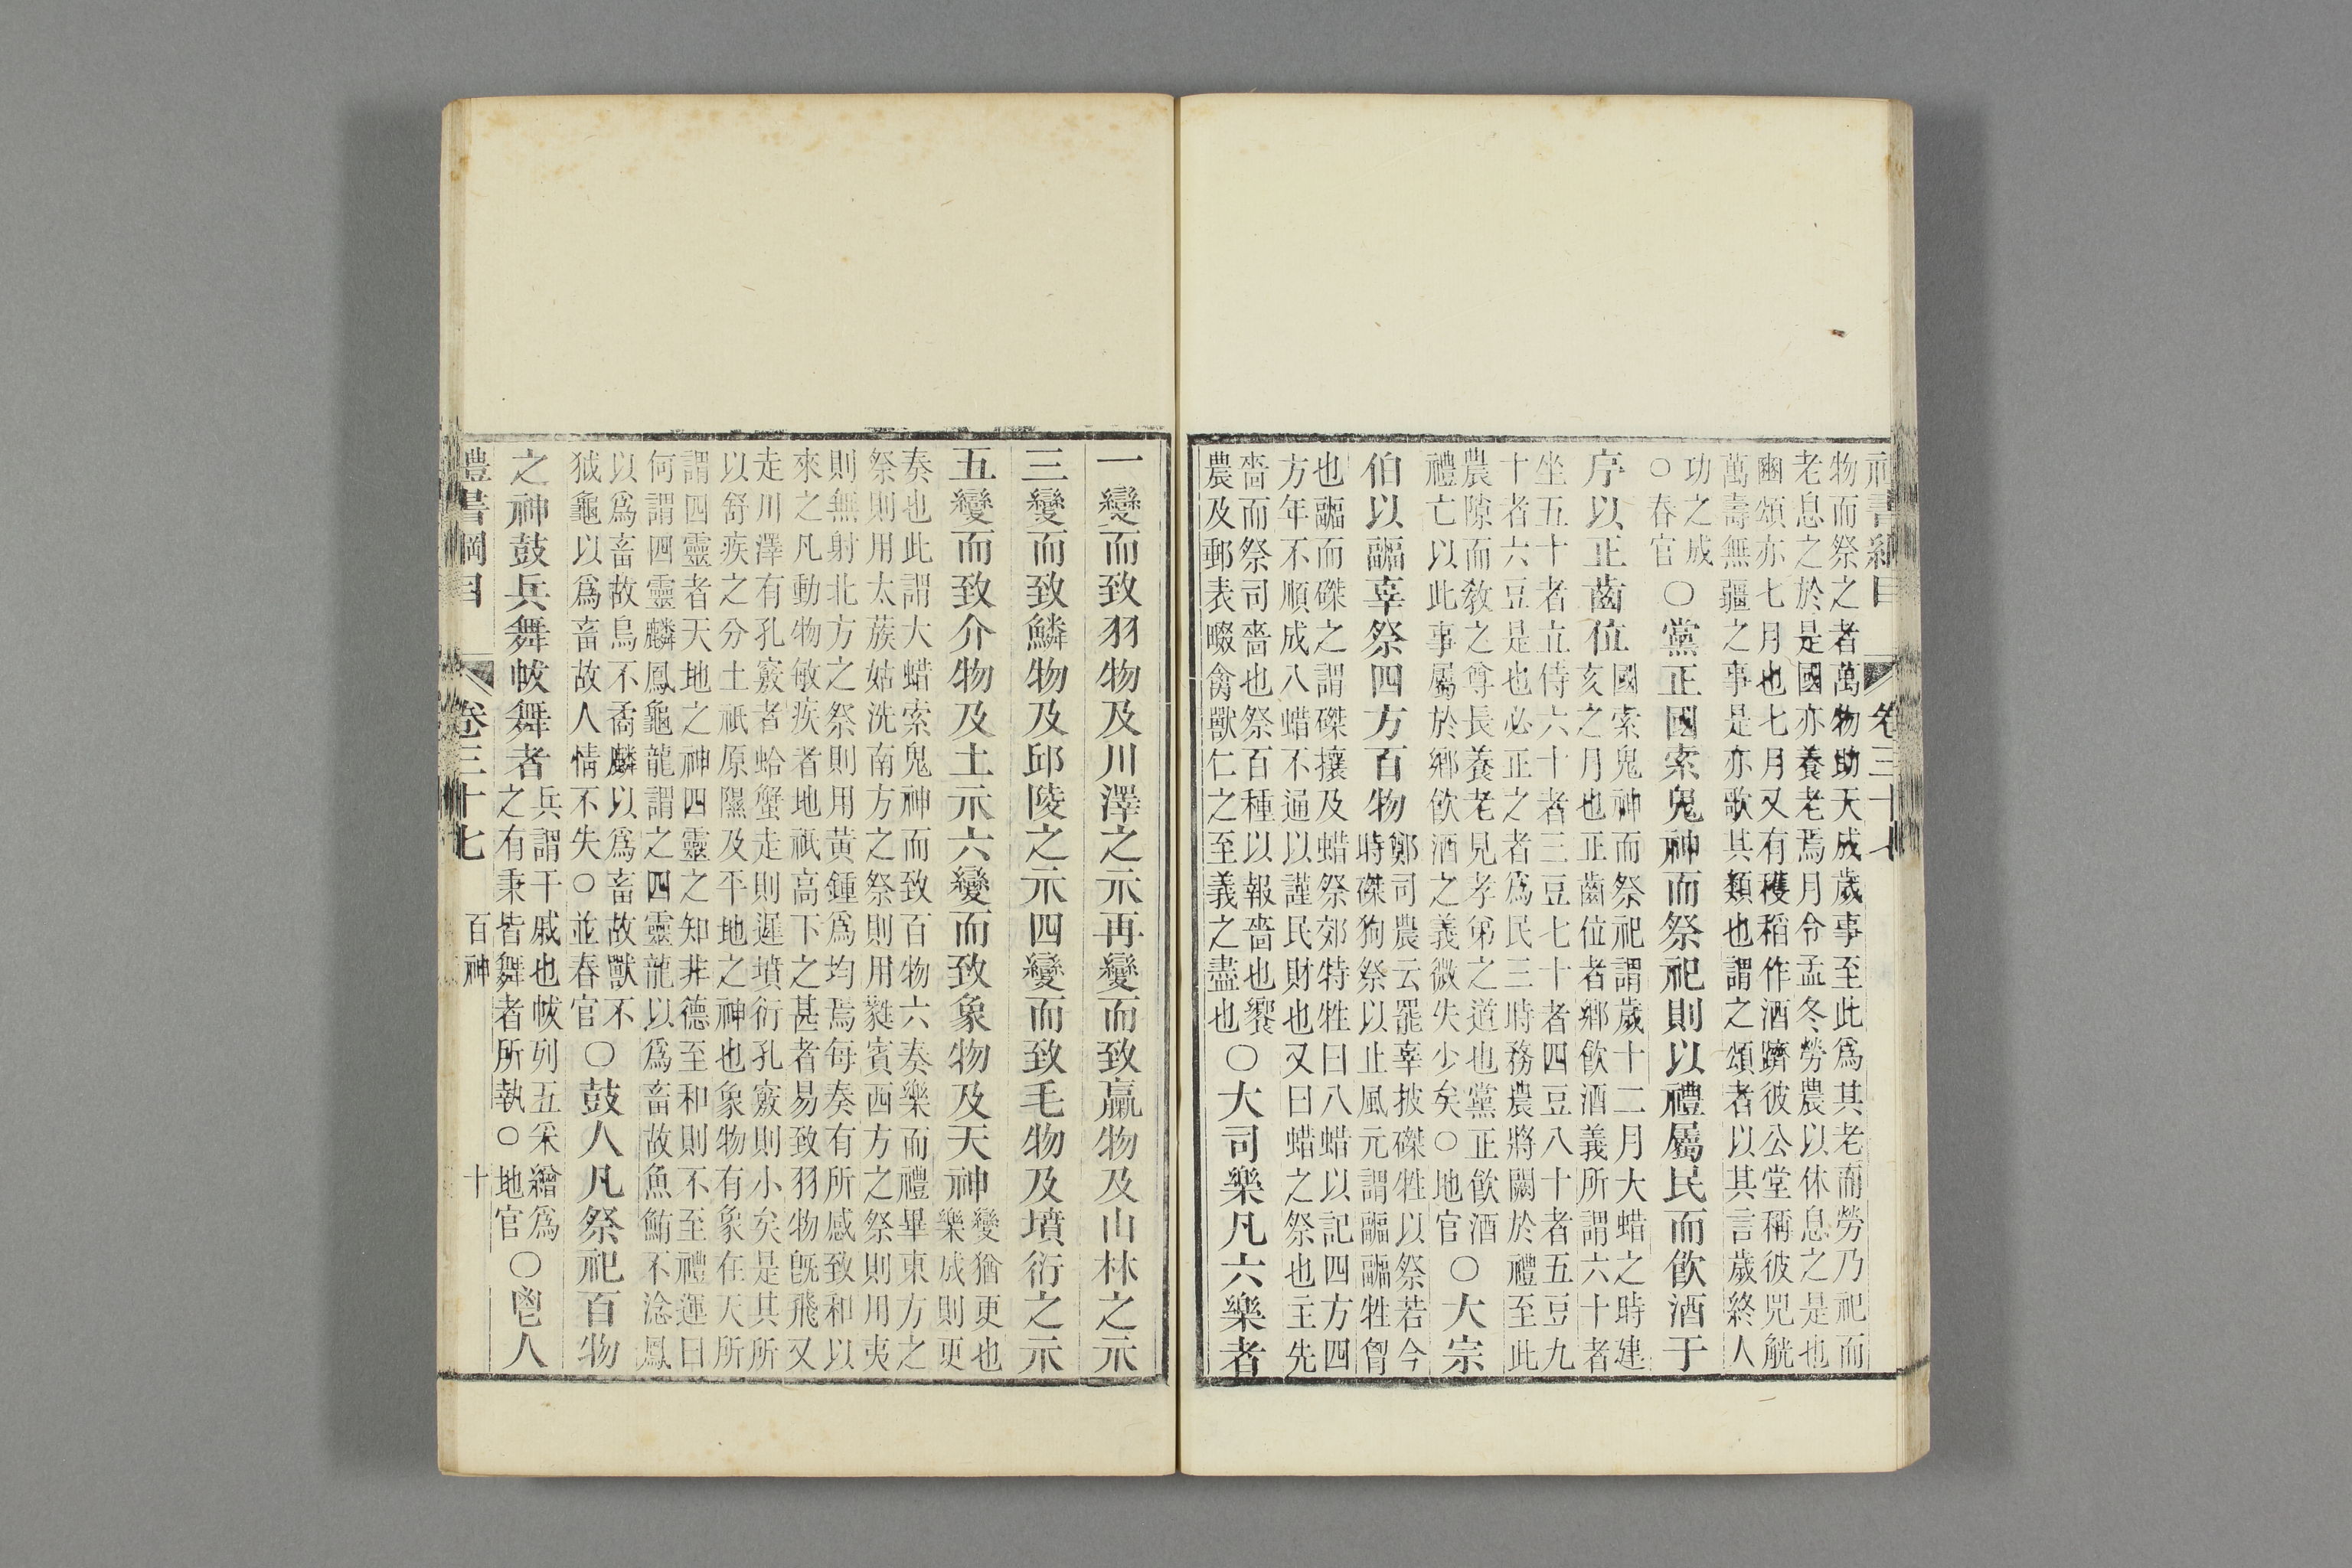 禮書綱目 卷三十七
物而祭之者萬物助天成歲事至此爲其老而勞乃祀而
老息之於是國亦養老焉月令孟冬勞農以休息之是也
豳頌亦七月也七月又有穫稻作酒躋彼公堂稱彼兕觥
萬壽無疆之事是亦歌其類也謂之頌者以其言歲終人
功之成
○春官
○黨正國索鬼神而祭祀則以禮屬民而飮酒于
序以正齒位
國索鬼神而祭祀謂歲十二月大蜡之時建
亥之月也正齒位者鄉飮酒義所謂六十者
坐五十者立侍六十者三豆七十者四豆八十者五豆九
十者六豆是也必正之者爲民三時務農將闕於禮至此
農隙而敎之尊長養老見孝弟之道也黨正飮酒
禮亡以此事屬於鄉飮酒之義微失少矣○地官
○大宗
伯以疈辜祭四方百物
鄭司農云罷辜披磔牲以祭若今
時磔狗祭以止風元謂疈疈牲胷
也疈而磔之謂磔攘及蜡祭郊特牲曰八蜡以記四方四
方年不順成八蜡不通以謹民財也又曰蜡之祭也主先
嗇而祭司嗇也祭百種以報嗇也饗
農及郵表畷禽獸仁之至義之盡也
○大司樂凡六樂者
一變而致羽物及川澤之示再變而致臝物及山林之示
三變而致鱗物及邱陵之示四變而致毛物及墳衍之示
五變而致介物及土示六變而致象物及天神
變猶更也
樂成則更
奏也此謂大蜡索鬼神而致百物六奏樂而禮畢東方之
祭則用太蔟姑洗南方之祭則用蕤賓西方之祭則用夷
則無射北方之祭則用黃鍾爲均焉每奏有所感致和以
來之凡動物敏疾者地祇高下之甚者易致羽物旣飛又
走川澤有孔竅者蛤蟹走則遲墳衍孔竅則小矣是其所
以舒疾之分土祇原隰及平地之神也象物有象在天所
謂四靈者天地之神四靈之知非德至和則不至禮運曰
何謂四靈麟鳳龜龍謂之四靈龍以爲畜故魚鮪不淰鳳
以爲畜故鳥不矞麟以爲畜故獸不
狘龜以爲畜故人情不失○並春官
○鼓人凡祭祀百物
之神鼓兵舞帗舞者
兵謂干戚也帗列五采繒爲
之有秉皆舞者所執○地官
○鬯人
禮書綱目 卷三十七 百神 十